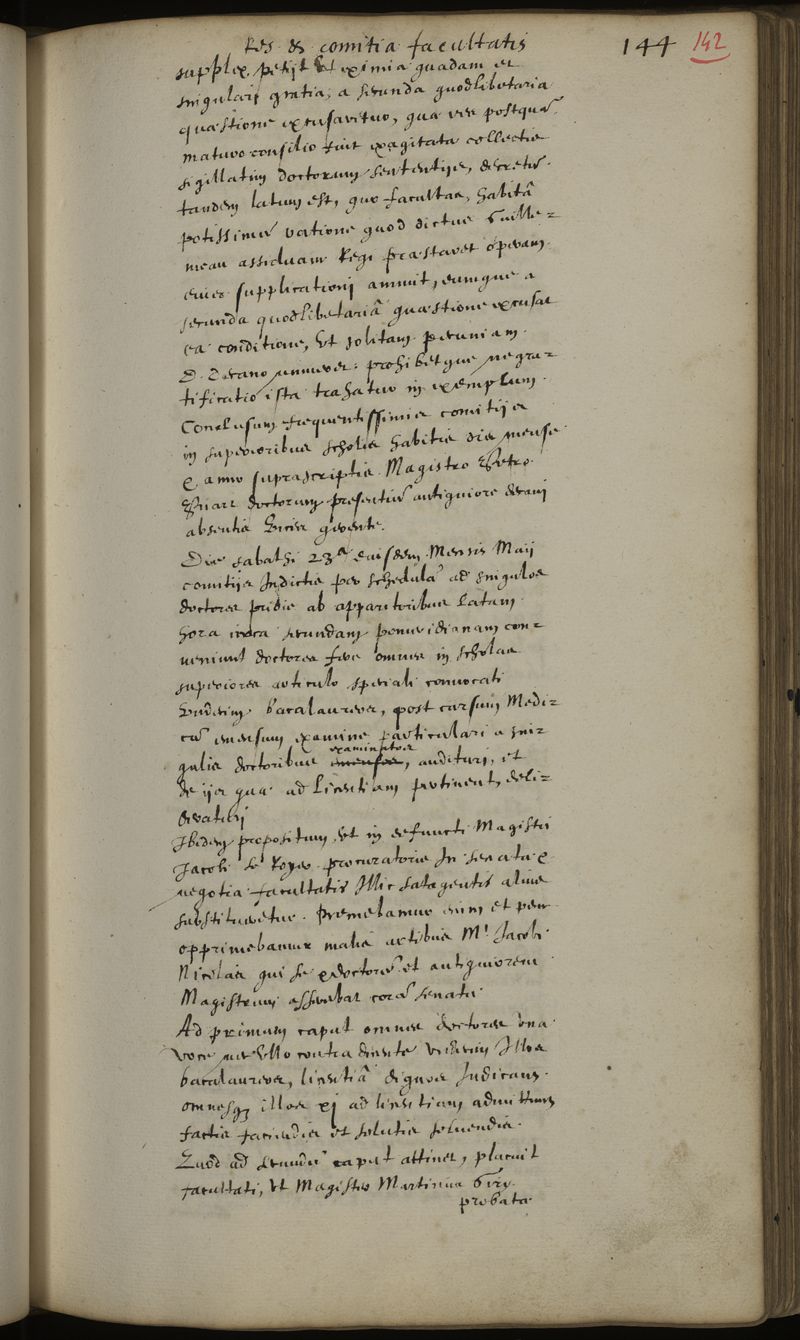 Res & comitia facultatis 144 142
supplex petijt ut eximia quadam et
singulari gratia, a secunda quodlibetaria
quæstione excusaretur, quæ res postquã
maturo consilio fuit exagitata collectis
sigillatim doctorum sententijs, decretũ
tandem latum est, quo facultas, habitâ
potissimũ ratione quod dictus Guille-
meau assiduam Regi præstaret operam
eius supplicationi annuit, eumque a
secunda quodlibetariâ quæstione excusat
ea conditione, ut solitam pecuniam
D. Decano numeret: prohibetque ne gra-
tificatio ista trahatur in exemplum.
Conclusum frequentissimis comitijs
in superioribus scholis habitis die mense
& anno suprascriptis. Magistro Petro
doctorum presentiũ antiquiore decani
absentis vices gerente.
Die sabathi 23ª eiusdem Mensis Maij
comitijs Indictis per schedulã ad singulos
doctores pridie ab apparitoribus latam
hora circa secundam pomeridianam con-
ueniunt doctores fere omnes in scholas
superiores articulo speciali conuocati
Vndecim bacalaureos, post cursum Medi-
cũ emensum examine particulari a sin-
gulis doctoribus examinatos, audituri, et
de ijs quæ ad licentiam pertinent, deli-
beraturi
Ibidem propositum, ut in defuncti Magistri
Jacobi le Royer procuratoris In senatu &
negotia facultatis illic satagentis alius
substitueretur. Premebamur enim et pene
opprimebamur malis artibus Mˡ Jacobi
Nicolas qui se & doctorẽ et antiquiorem
Magistrum asserebat corã senatu.
Ad primum caput omnes doctores vna
voce nec vllo contra dicente vndecim Illos
bacalaureos, licentiâ dignos Iudicant.
omnesq; illos xj ad licentiam admittunt
factis faciendis et solutis soluendis.
Quod ad secundũ caput attinet, placuit
facultati, ut Magister Martinus
probata